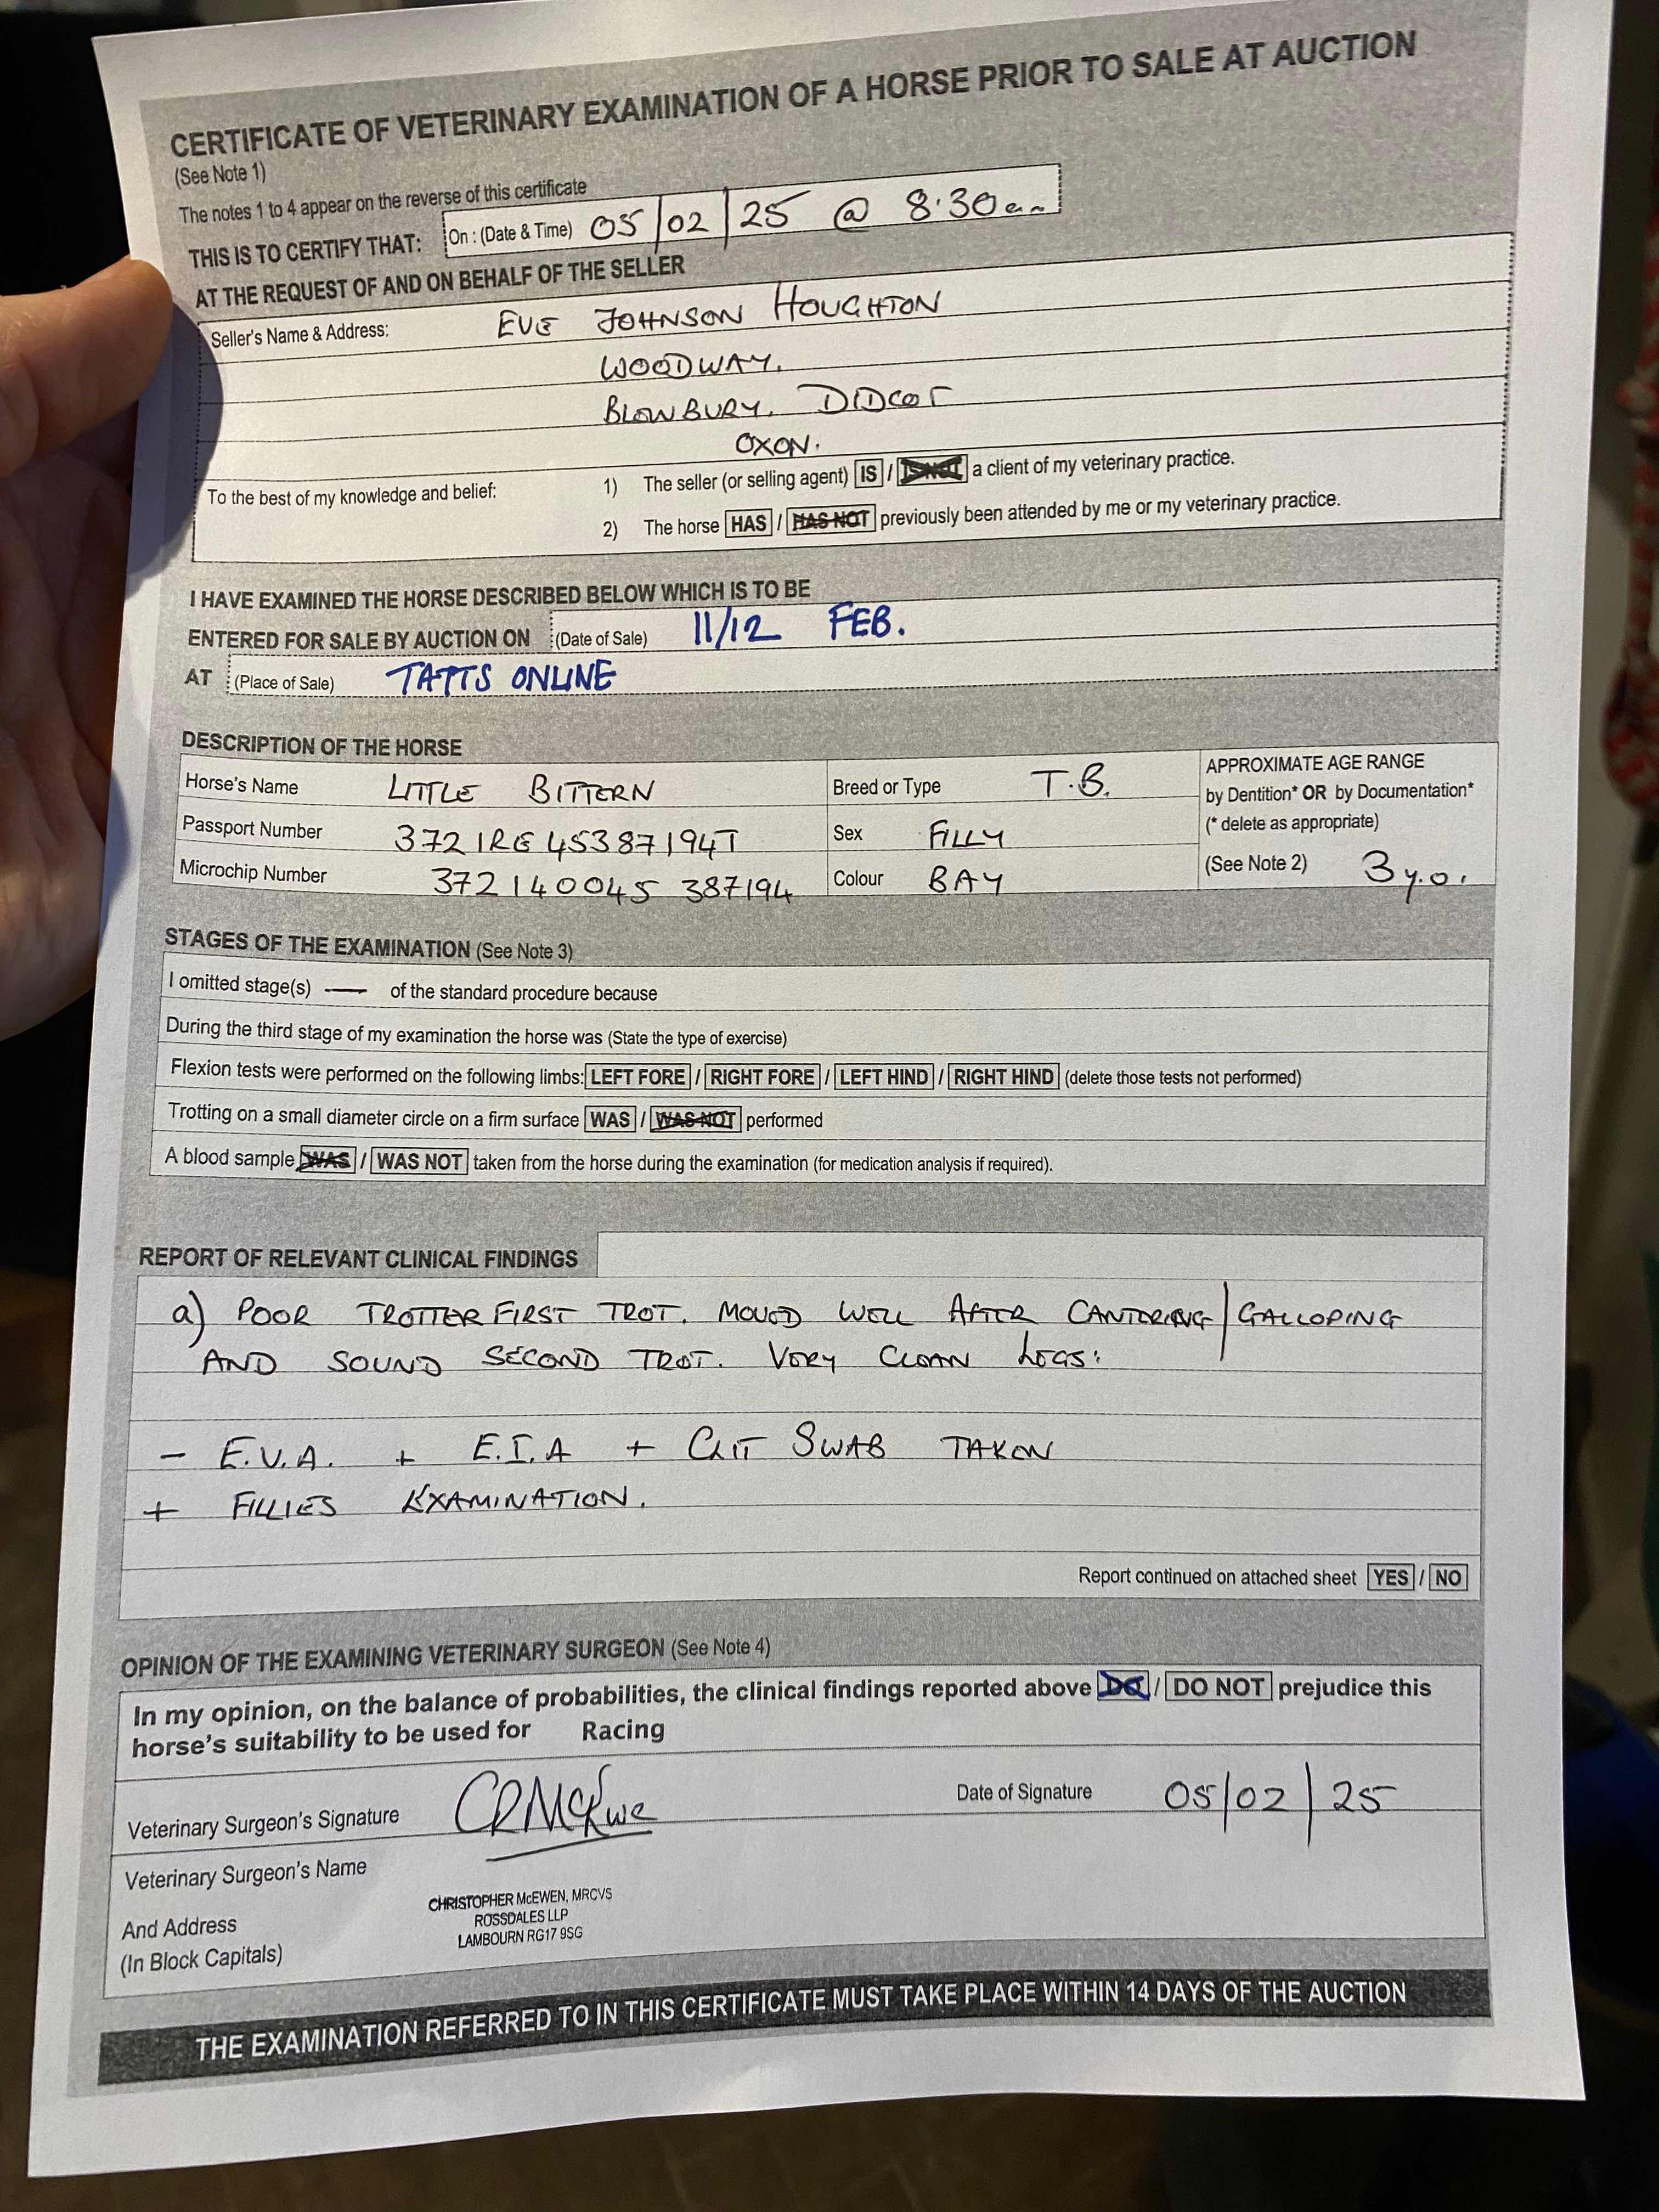 CERTIFICATE OF VETERINARY EXAMINATION OF A HORSE PRIOR TO SALE AT AUCTION
(See Note 1)
The notes 1 to 4 appear on the reverse of this certificate
THIS IS TO CERTIFY THAT: On : (Date & Time) 05/02/25 @ 8.30am
AT THE REQUEST OF AND ON BEHALF OF THE SELLER
Seller's Name & Address: EVE JOHNSON HOUGHTON
WOODWAY.
BLEWBURY. DIDCOT
OXON.
To the best of my knowledge and belief: 1) The seller (or selling agent) IS / IS NOT a client of my veterinary practice.
2) The horse HAS / HAS NOT previously been attended by me or my veterinary practice.
I HAVE EXAMINED THE HORSE DESCRIBED BELOW WHICH IS TO BE
ENTERED FOR SALE BY AUCTION ON (Date of Sale) 11/12 FEB.
AT (Place of Sale) TATTS ONLINE
DESCRIPTION OF THE HORSE
Horse's Name LITTLE BITTERN Breed or Type T.B.
Passport Number 372 IRE 45387194T Sex FILLY
Microchip Number 372140045 387194 Colour BAY
APPROXIMATE AGE RANGE
by Dentition* OR by Documentation*
(* delete as appropriate)
(See Note 2) 3 y.o.
STAGES OF THE EXAMINATION (See Note 3)
I omitted stage(s) — of the standard procedure because
During the third stage of my examination the horse was (State the type of exercise)
Flexion tests were performed on the following limbs: LEFT FORE / RIGHT FORE / LEFT HIND / RIGHT HIND (delete those tests not performed)
Trotting on a small diameter circle on a firm surface WAS / WAS NOT performed
A blood sample WAS / WAS NOT taken from the horse during the examination (for medication analysis if required).
REPORT OF RELEVANT CLINICAL FINDINGS
a) POOR TROTTER FIRST TROT. MOVED WELL AFTER CANTERING/GALLOPING
AND SOUND SECOND TROT. VERY CLEAN LEGS.
- E.V.A. + E.I.A + CLIT SWAB TAKEN
+ FILLIES EXAMINATION.
Report continued on attached sheet YES / NO
OPINION OF THE EXAMINING VETERINARY SURGEON (See Note 4)
In my opinion, on the balance of probabilities, the clinical findings reported above DO / DO NOT prejudice this
horse's suitability to be used for Racing
Veterinary Surgeon's Signature Date of Signature 05/02/25
Veterinary Surgeon's Name
And Address
(In Block Capitals)
CHRISTOPHER McEWEN, MRCVS
ROSSDALES LLP
LAMBOURN RG17 9SG
THE EXAMINATION REFERRED TO IN THIS CERTIFICATE MUST TAKE PLACE WITHIN 14 DAYS OF THE AUCTION